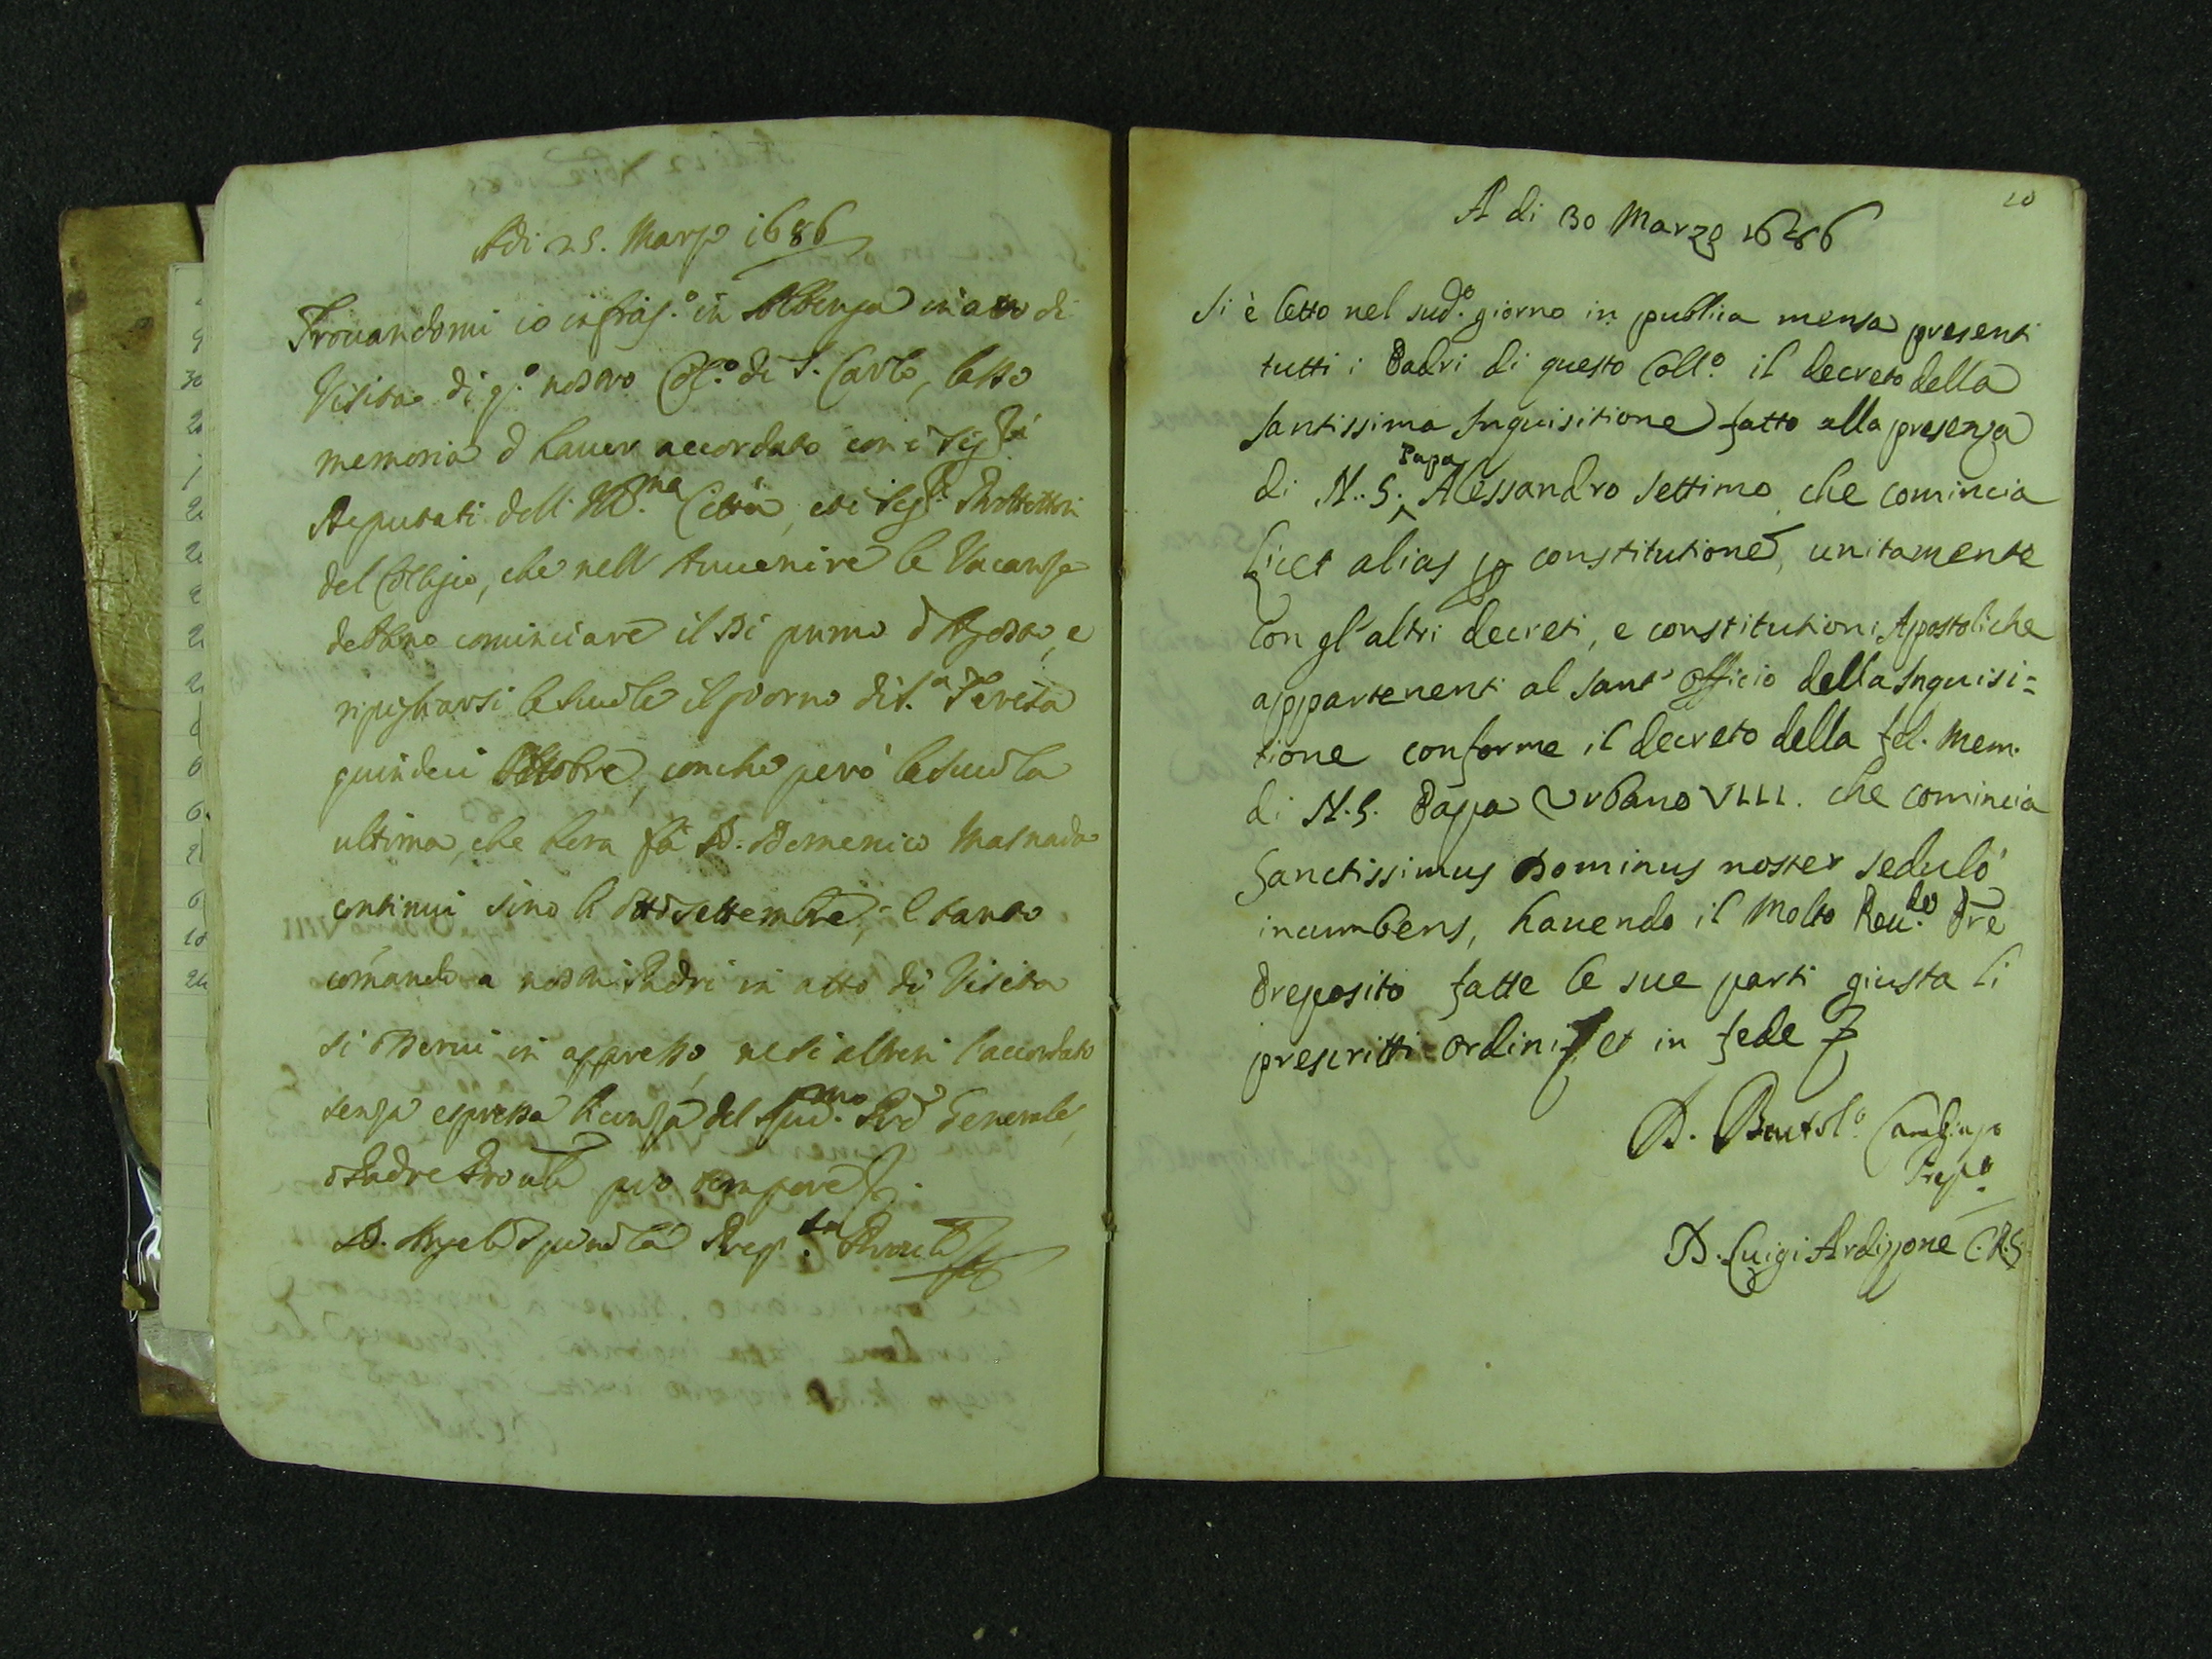 Adi 25. Marzo 1686
Trouandomi io infras.o in Albenga in atto di
Visita di q.o nostro Col.o di S. Carlo, lasso
memoria d hauer accordato con i Sig.ri
Deputati dell Ill.ma Città, et i Sig.ri Prottettori
del Collegio, che nell Auuenire le Vacanze
debbano cominciare il Di primo d Agosto, e
ripigliarsi le Scuole il giorno di S.a Teresa
quindeci Ottobre, con che però la Scuola
ultima, che hora fà D. Domenico Masnada
continui sino li otto Settembre, e tanto
comando a nostri Padri in atto di Visita
si osserui in appresso, ne si alteri l'accordato
senza espressa licenza del Padre Generale,
o Padre Prou.le pro tempore
D. Angelo Spinola Prep.to Prou.le
20
A di 30 Marzo 1686
Si è letto nel sud.o giorno in publica mensa presenti
tutti i Padri di questo Coll.o il decreto della
Santissima Inquisitione fatto alla presenza
di N. S. Papa Alessandro Settimo che comincia
Licet alias constitutione, unitamente
con gl'altri decreti, e constitutioni Apostoliche
appartenenti al Sant' Officio della Inquisi=
tione conforme il decreto della fel. mem.
di N. S. Papa Urbano VIII. che comincia
Sanctissimus Dominus noster sedulò
incumbens, hauendo il Molto Reu.do Pre
Preposito fatte le sue parti giusta li
prescritti ordini, et in fede
D. Bartol.o Prep.o
D. Luigi Ardizzone C.R.S.